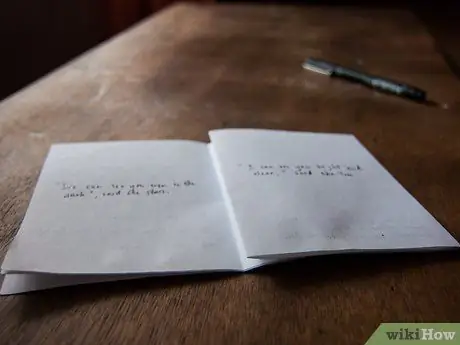 "We can see you even in the
dark", said the stars.
"I can see you bright and
clear," said the
wikiHow